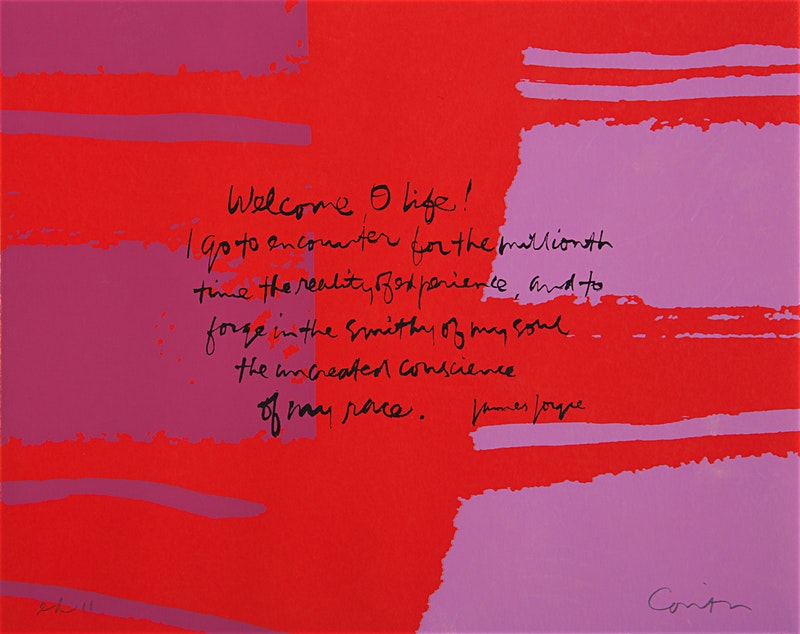 Welcome O life!
I go to encounter for the millionth
time the reality of experience, and to
forge in the smithy of my soul
the uncreated conscience
of my race. James Joyce
Corita